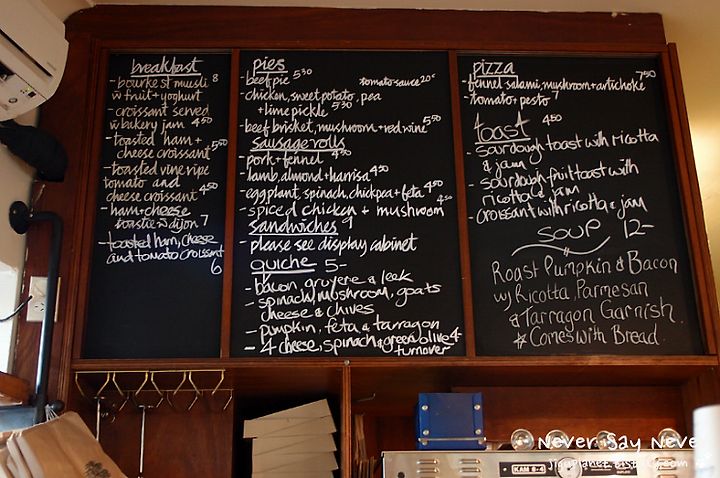 breakfast
- bourke st musli 8
w fruit + yoghurt
- croissant served
w bakery jam 4 50
- toasted ham +
cheese croissant 5 50
- toasted vine ripe
tomato and
cheese croissant 4 50
- ham + cheese
toastie w dijon 7
- toasted ham, cheese
and tomato croissant
6
pies
- beef pie 5 30 tomato sauce 20c
- chicken, sweet potato, pea
+ lime pickle 5 30
- beef brisket, mushroom + red wine 5 50
sausage rolls
- pork + fennel 4 50
- lamb, almond + harrisa 4 50
- eggplant, spinach, chickpea + feta 4 50
- spiced chicken + mushroom 4 50
sandwiches 9
- please see display cabinet
quiche 5-
- bacon, gruyere & leek
- spinach, mushroom, goats
cheese & chives
- pumpkin, feta & tarragon
- 4 cheese, spinach & green olive 4-
turnover
pizza
- fennel salami, mushroom + artichoke 7 50
- tomato + pesto 7
toast 4 50
- sourdough toast with ricotta
& jam
- sourdough fruit toast with
ricotta & jam
- croissant with ricotta & jam
SOUP 12-
ROAST PUMPKIN & BACON
W/ RICOTTA, PARMESAN
& TARRAGON GARNISH.
* COMES WITH BREAD.
KAM 8-4
NEVER SAY NEVER